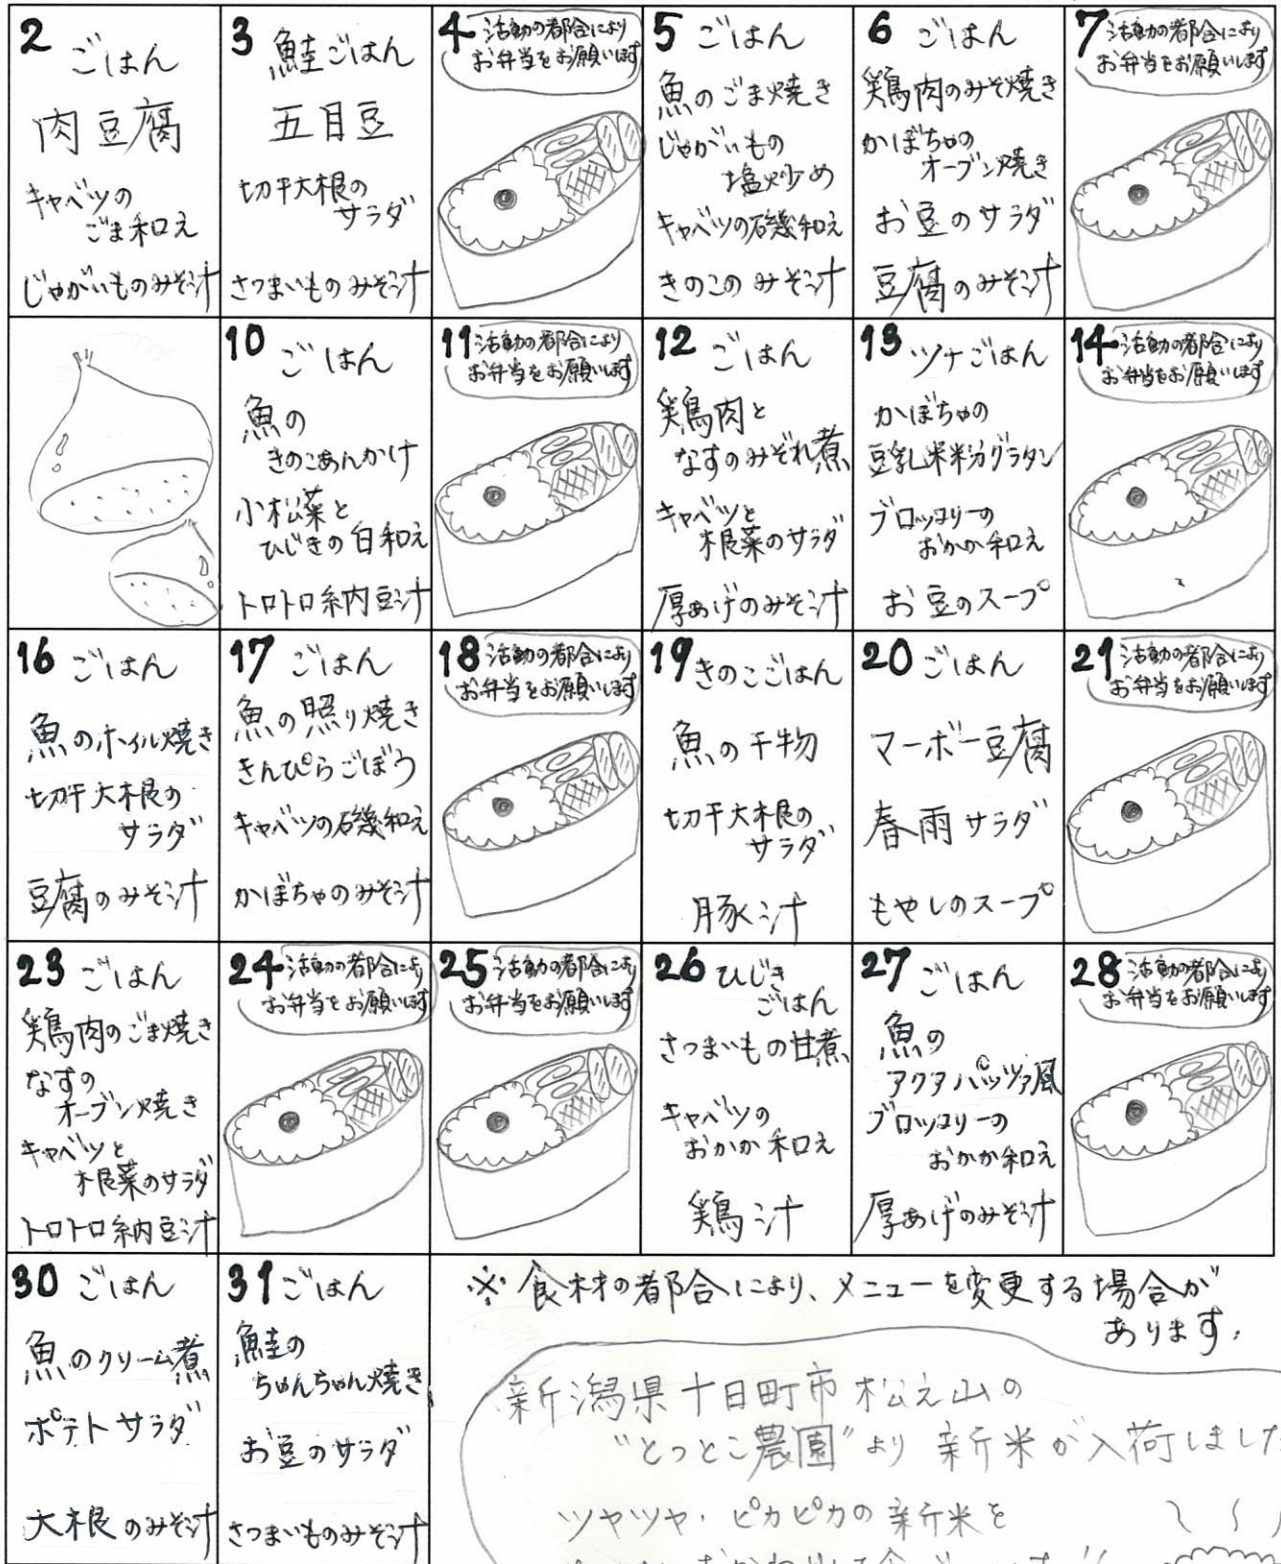 2 ごはん
肉豆腐
キャベツの
ごま和え
じゃがいものみそ汁
3 鮭ごはん
五目豆
切干大根の
サラダ
さつまいものみそ汁
4 活動の都合により
お弁当をお願いします
5 ごはん
魚のごま焼き
じゃがいもの
塩炒め
キャベツの磯和え
きのこのみそ汁
6 ごはん
鶏肉のみそ焼き
かぼちゃの
オーブン焼き
お豆のサラダ
豆腐のみそ汁
7 活動の都合により
お弁当をお願いします
10 ごはん
魚の
きのこあんかけ
小松菜と
ひじきの白和え
トロトロ納豆汁
11 活動の都合により
お弁当をお願いします
12 ごはん
鶏肉と
なすのみぞれ煮
キャベツと
根菜のサラダ
厚あげのみそ汁
13 ツナごはん
かぼちゃの
豆乳米粉グラタン
ブロッコリーの
おかか和え
お豆のスープ
14 活動の都合により
お弁当をお願いします
16 ごはん
魚のホイル焼き
切干大根の
サラダ
豆腐のみそ汁
17 ごはん
魚の照り焼き
きんぴらごぼう
キャベツの磯和え
かぼちゃのみそ汁
18 活動の都合により
お弁当をお願いします
19 きのこごはん
魚の干物
切干大根の
サラダ
豚汁
20 ごはん
マーボー豆腐
春雨サラダ
もやしのスープ
21 活動の都合により
お弁当をお願いします
23 ごはん
鶏肉のごま焼き
なすの
オーブン焼き
キャベツと
根菜のサラダ
トロトロ納豆汁
24 活動の都合により
お弁当をお願いします
25 活動の都合により
お弁当をお願いします
26 ひじき
ごはん
さつまいもの甘煮
キャベツの
おかか和え
鶏汁
27 ごはん
魚の
アクアパッツァ風
ブロッコリーの
おかか和え
厚あげのみそ汁
28 活動の都合により
お弁当をお願いします
30 ごはん
魚のクリーム煮
ポテトサラダ
大根のみそ汁
31 ごはん
鮭の
ちゃんちゃん焼き
お豆のサラダ
さつまいものみそ汁
※食材の都合により、メニューを変更する場合が
あります。
新潟県十日町市松之山の
"とっとこ農園"より新米が入荷しました
ツヤツヤ・ピカピカの新米を